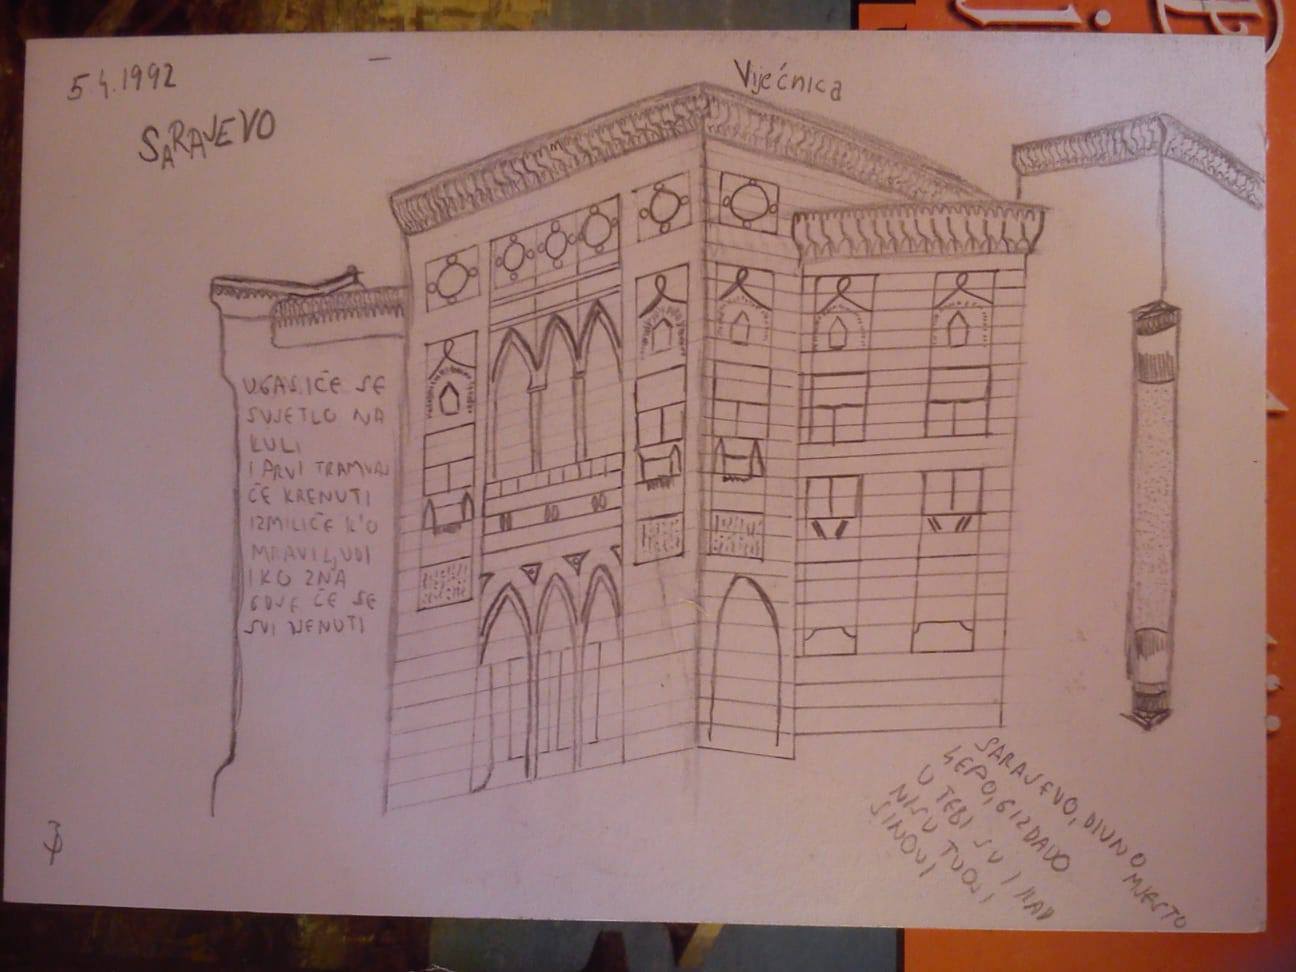 5.4.1992
SARAJEVO
Vijećnica
UGASIĆE SE
SVJETLO NA
KULI
I PRVI TRAMVAJ
ĆE KRENUTI
IZMILIĆE K'O
MRAVI LJUDI
I KO ZNA
GDJE ĆE SE
SVI DENUTI
SARAJEVO, DIVNO MJESTO
LEPO, GIZDAVO
U TEBI SU I SAD
NISU TVOJI
SINOVI